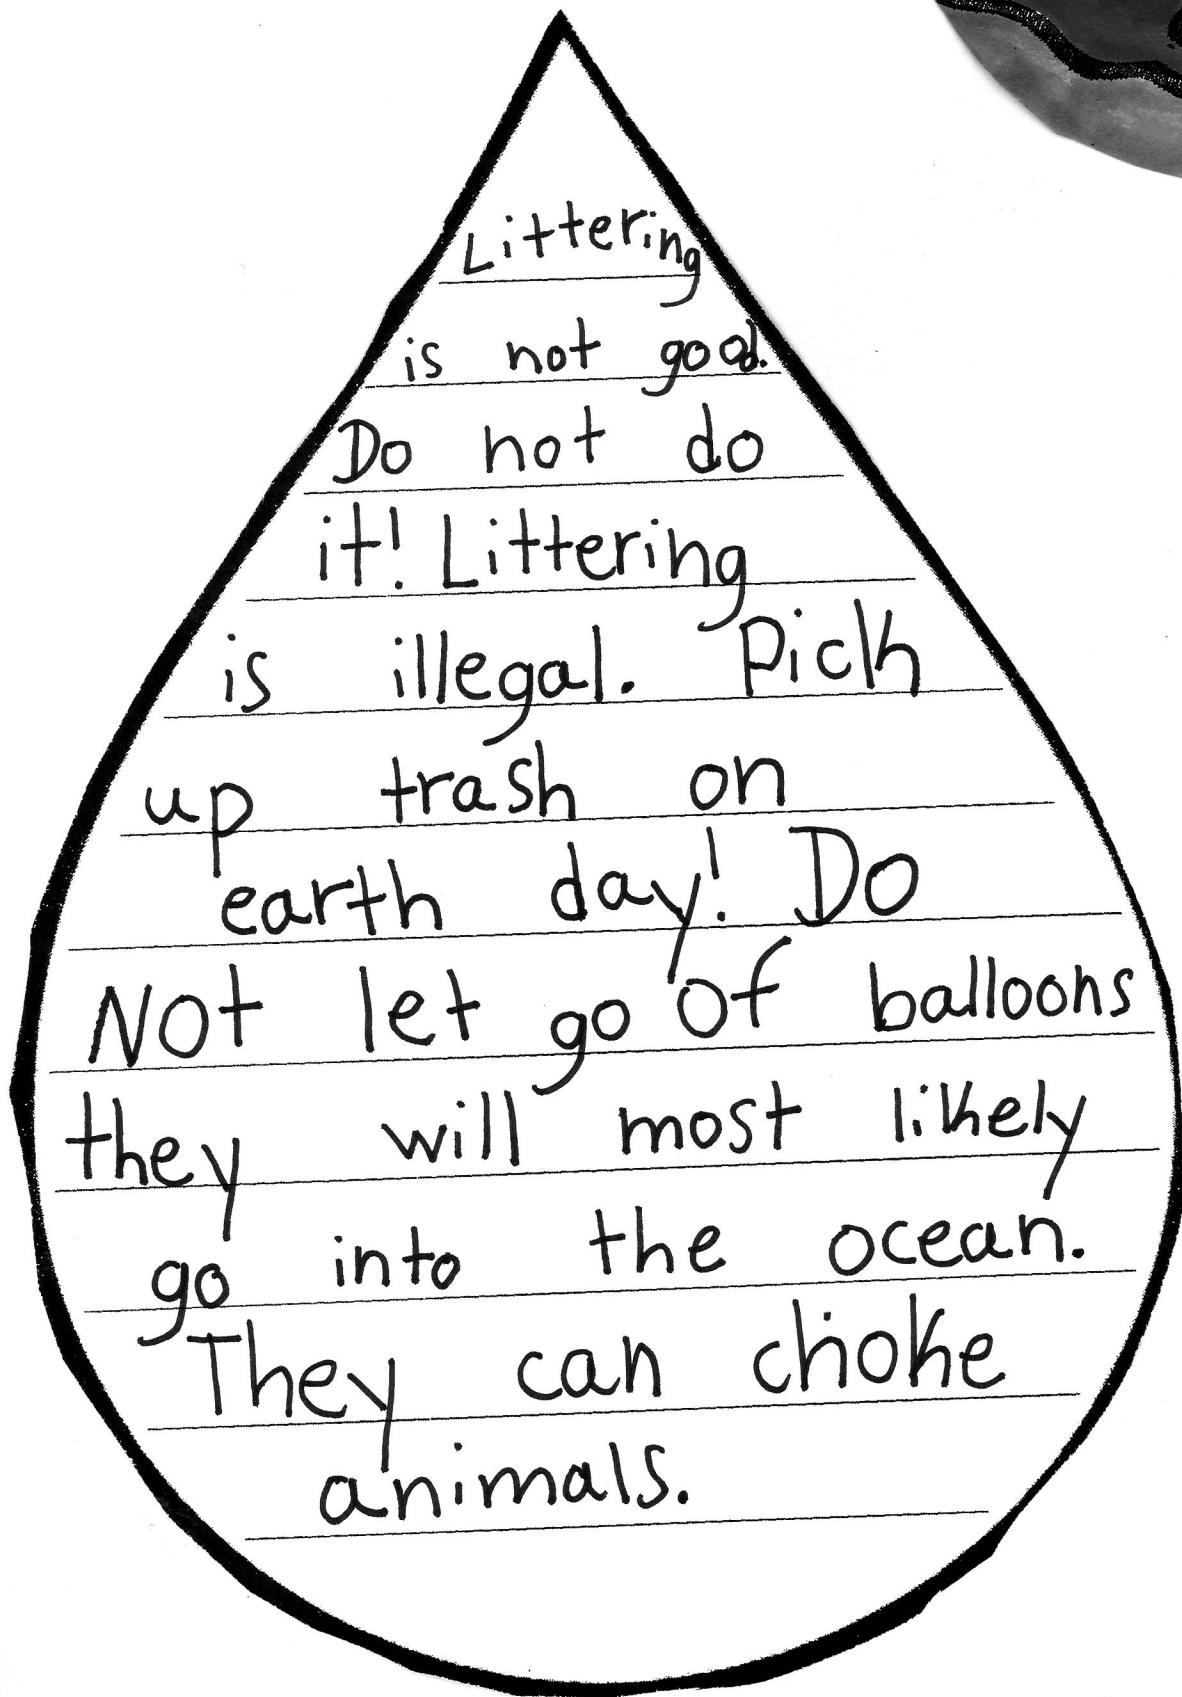 Littering
is not good.
Do not do
it! Littering
is illegal. Pick
up trash on
earth day! Do
Not let go of balloons
they will most likely
go into the ocean.
They can choke
animals.